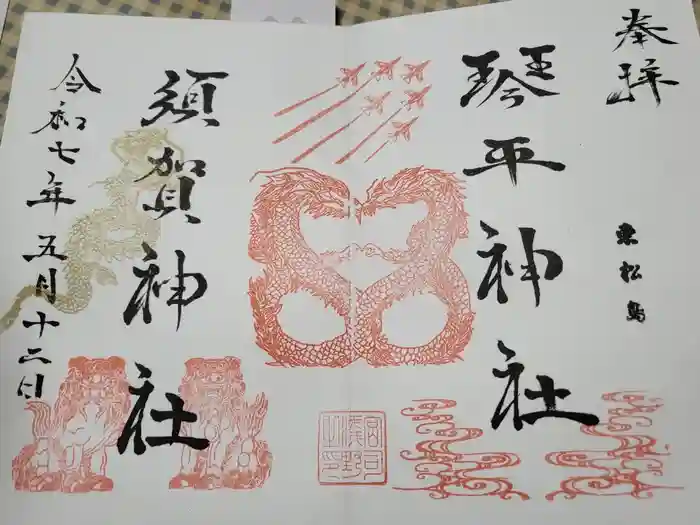 奉拝
東松島
琴平神社
須賀神社
令和七年五月十二日